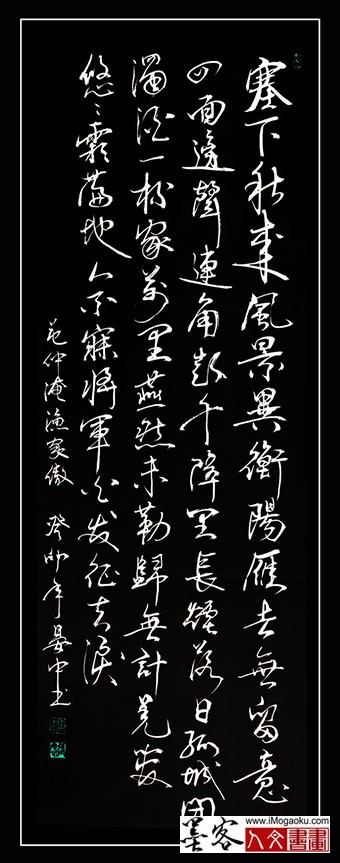 塞下秋来風景異衡陽雁去無留意
四面邊聲連角起千障里長煙落日孤城閉
濁酒一杯家萬里燕然未勒歸無計羌管
悠々霜滿地人不寐將軍白发征夫淚
范仲淹漁家傲 癸卯年晏中书
www.iMogaoku.com
墨客 人文書畫